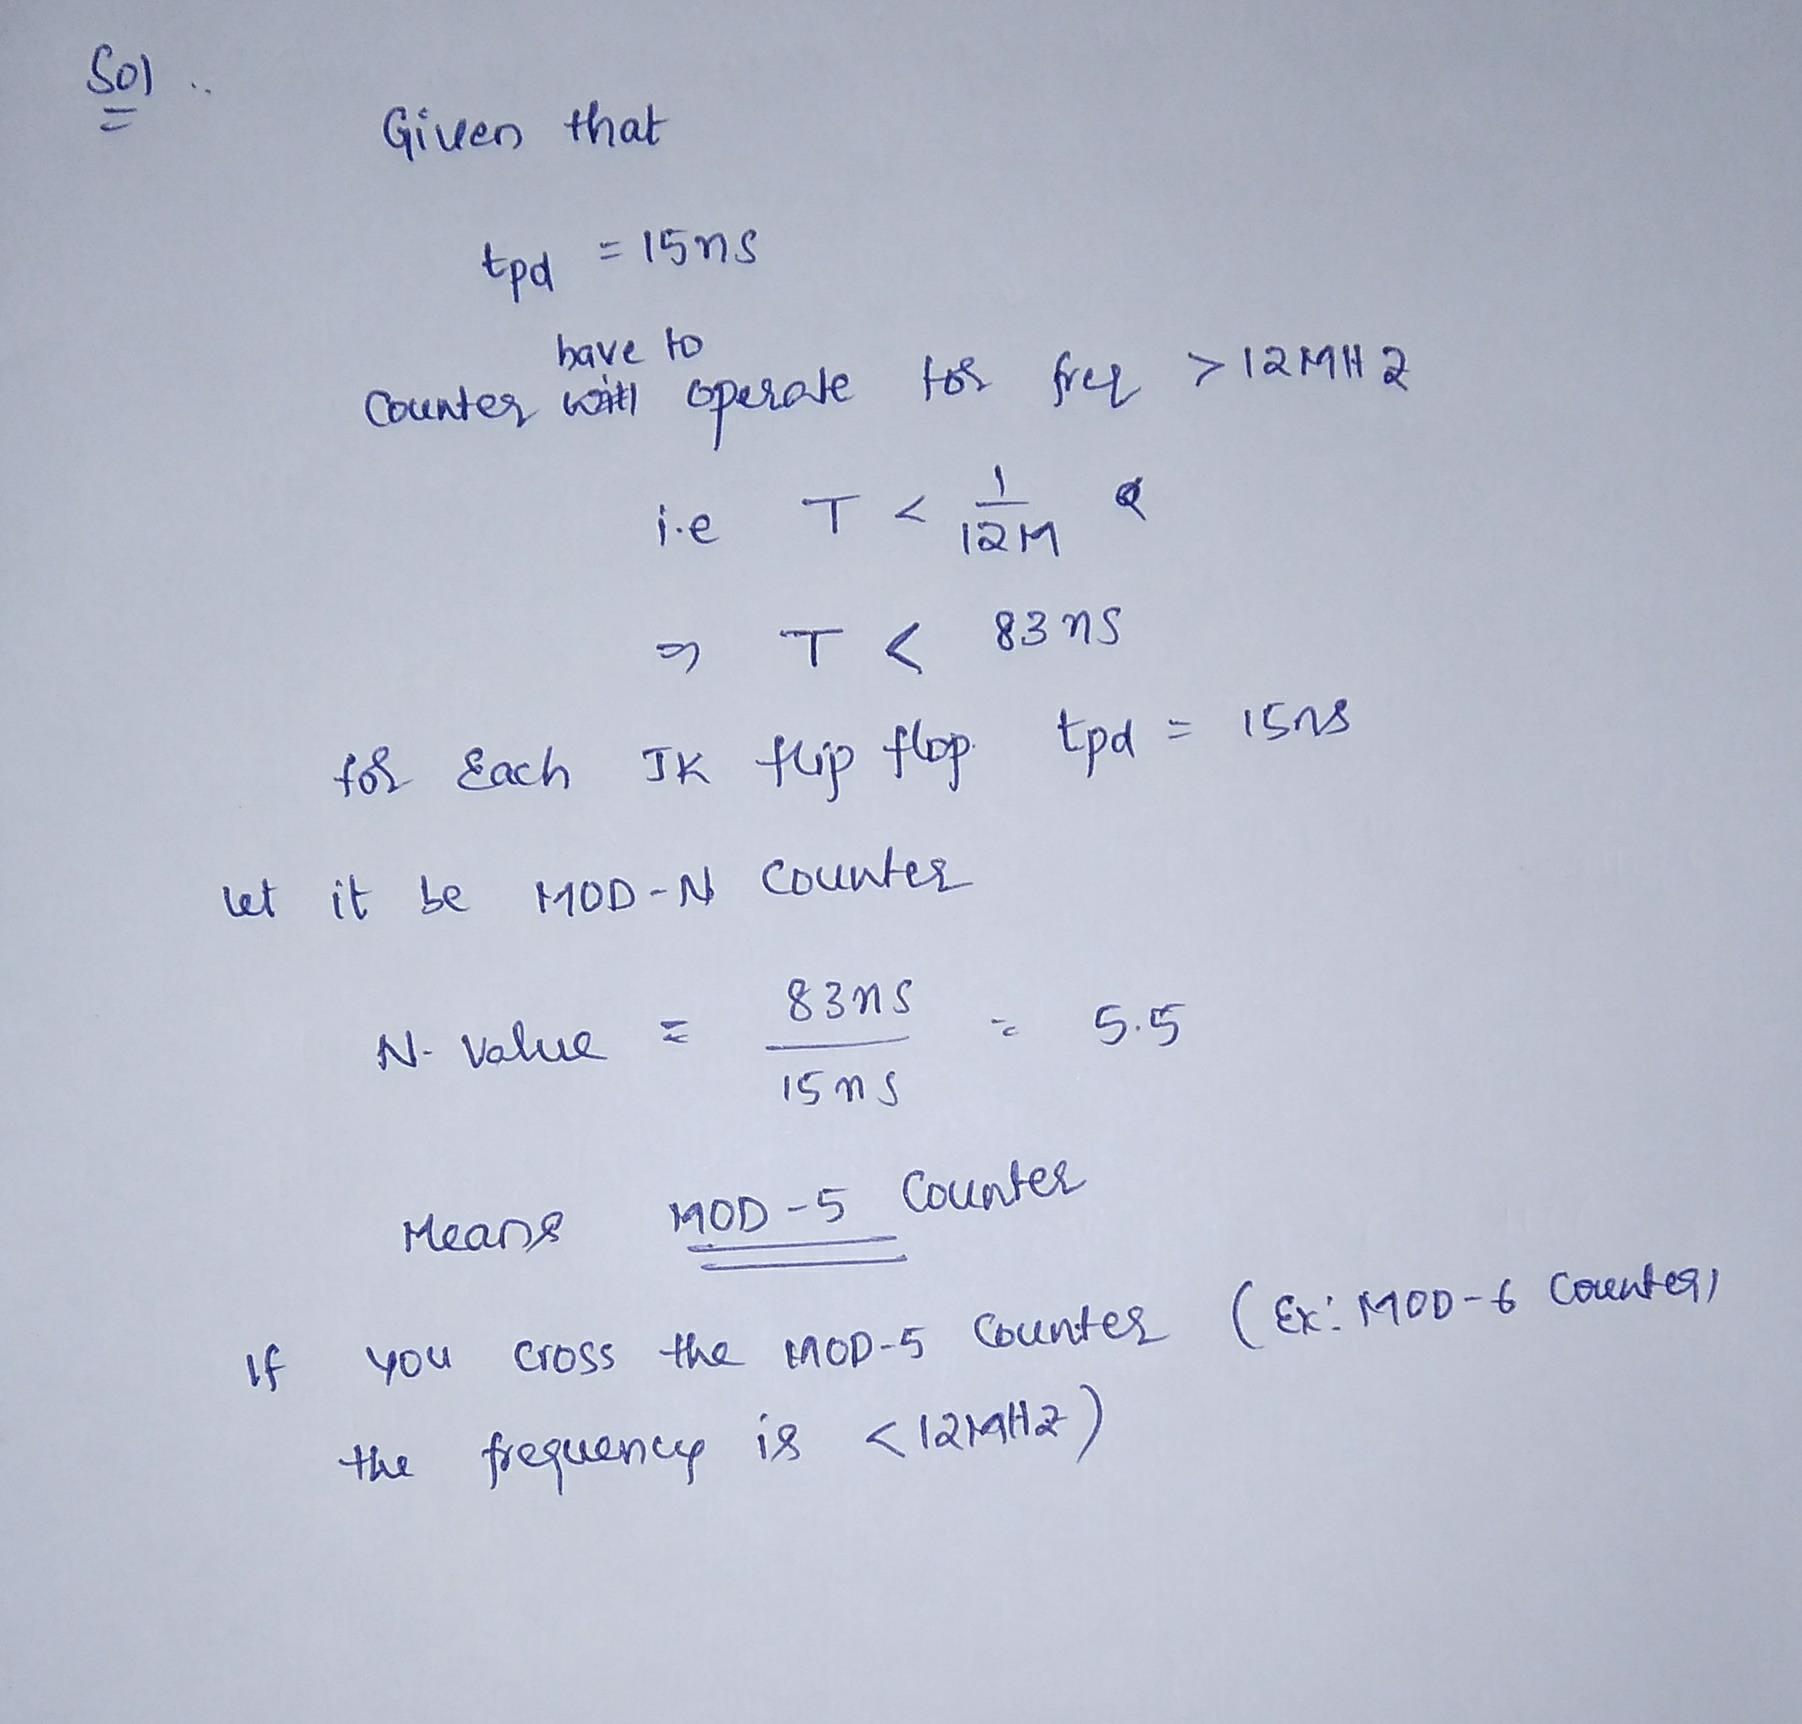 Sol ..
Given that
tpd = 15ns
have to
Counter operate for freq > 12MHz
i.e T < 1/12M
⇒ T < 83ns
for Each JK flip flop tpd = 15ns
let it be MOD-N Counter
N-Value = 83ns/15ns = 5.5
Means MOD-5 Counter
If you cross the MOD-5 Counter (Ex: MOD-6 Counter,
the frequency is < 12MHz)